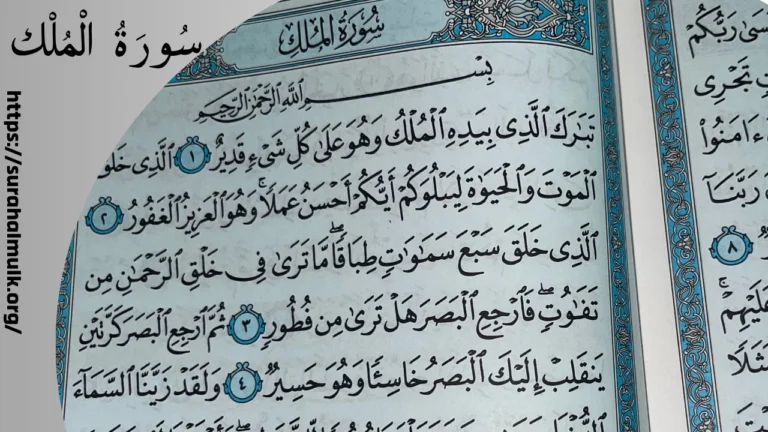 سُورَةُ الْمُلْك
https://surahalmulk.org/
سُورَةُ المُلْكِ
بِسْمِ ٱللَّهِ ٱلرَّحْمَٰنِ ٱلرَّحِيمِ
تَبَٰرَكَ ٱلَّذِى بِيَدِهِ ٱلْمُلْكُ وَهُوَ عَلَىٰ كُلِّ شَىْءٍ قَدِيرٌ ١ ٱلَّذِى خَلَقَ
ٱلْمَوْتَ وَٱلْحَيَوٰةَ لِيَبْلُوَكُمْ أَيُّكُمْ أَحْسَنُ عَمَلًا ۚ وَهُوَ ٱلْعَزِيزُ ٱلْغَفُورُ ٢
ٱلَّذِى خَلَقَ سَبْعَ سَمَٰوَٰتٍ طِبَاقًا ۖ مَّا تَرَىٰ فِى خَلْقِ ٱلرَّحْمَٰنِ مِن
تَفَٰوُتٍ ۖ فَٱرْجِعِ ٱلْبَصَرَ هَلْ تَرَىٰ مِن فُطُورٍ ٣ ثُمَّ ٱرْجِعِ ٱلْبَصَرَ كَرَّتَيْنِ
يَنقَلِبْ إِلَيْكَ ٱلْبَصَرُ خَاسِئًا وَهُوَ حَسِيرٌ ٤ وَلَقَدْ زَيَّنَّا ٱلسَّمَآءَ
رَبُّكُمْ
تَجْرِى
ءَامَنُوا۟
رَبَّنَآ
٨